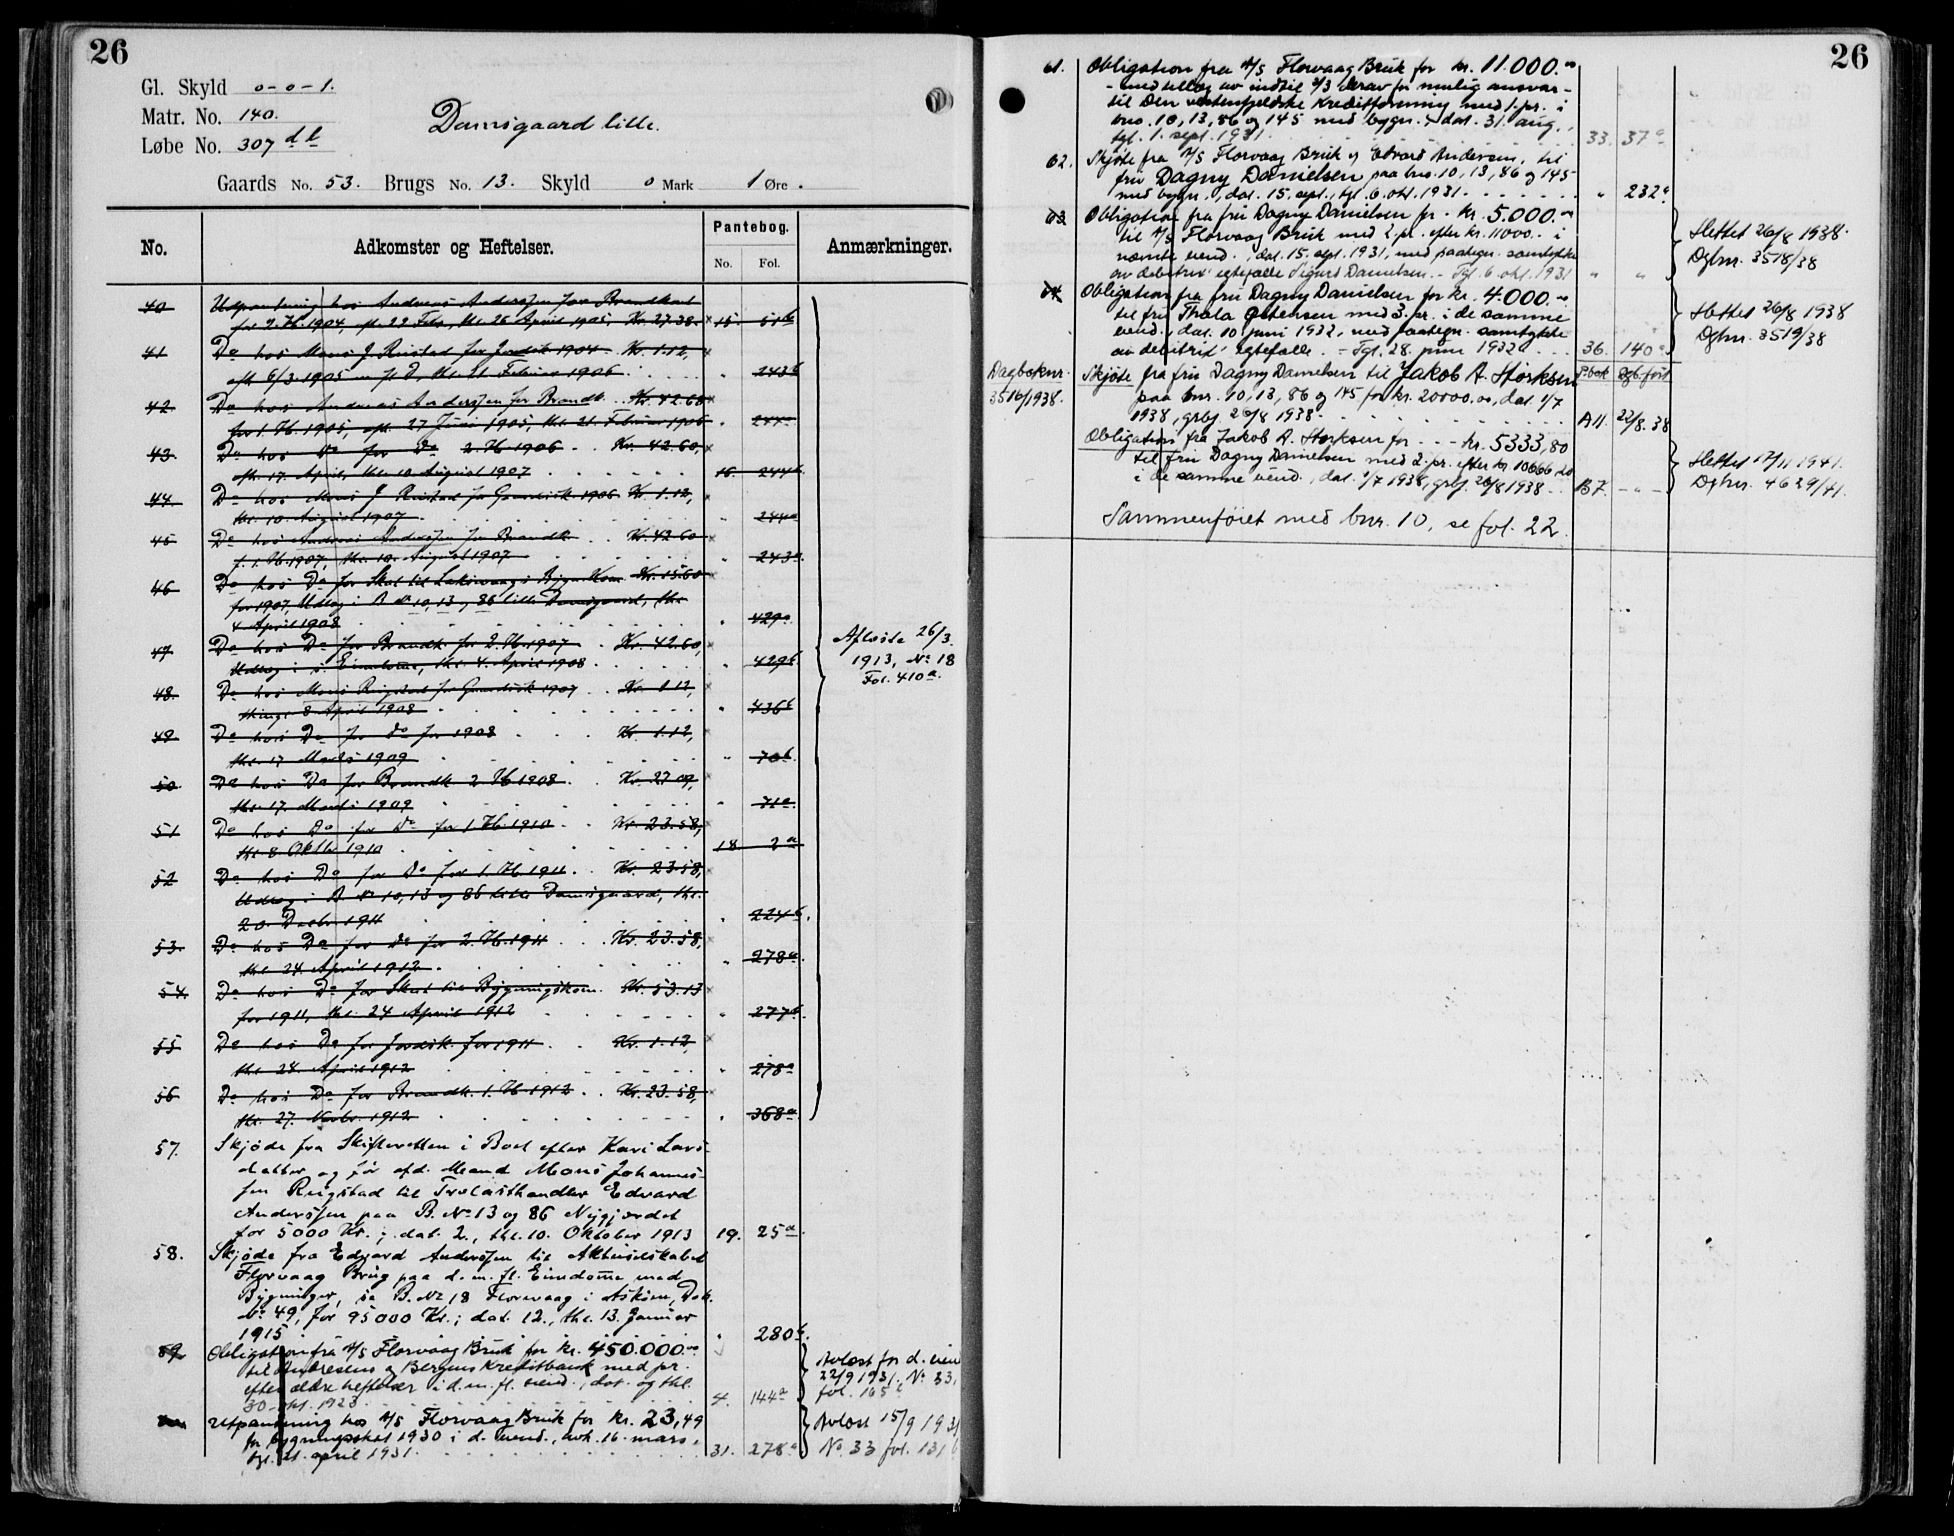 26
Gl. Skyld 0-0-1.
Matr. No. 140.
Løbe No. 307 dl
Damsgaard lille.
Gaards No. 53. Brugs No. 13. Skyld 0 Mark 1 Øre.
No. Adkomster og Heftelser. Pantebog. Anmærkninger.
No. Fol.
40 Udpantning hos Andreas Anderssen for Brandkont
for 2. H. 1904, aft. 22 Febr., thl. 26 April 1905, Kr. 27.38. 15. 51 b
41 Do hos Mons J. Ringstad for Jordsk 1904 Kr. 1.12,
aft. 6/3 1905 thl. 21 Februar 1906 243 b
42 Do hos Andreas Anderssen for Brandk. Kr. 42.60
for 1. H. 1905, aft. 27 Juni 1905, thl. 21. Februar 1906 " 244
43 Do hos Do for Do 2. H. 1906 Kr. 42.60,
aft. 17. April, thl. 10 August 1907 16 244
44 Do hos Mons J. Ringstad for 1906 Kr. 1.12,
thl. 10. August 1907 " 244 a
45 Do hos Andreas Anderssen for Brandk. Kr. 42.60
f. 1. H. 1907, thl. 10. August 1907 " 243 a
46 Do hos Do for Skat til Laksevaags Bygn.Kom. Kr. 15.60
for 1907, Udlæg i B. No 10, 13 og 86 lille Damsgaard, thl.
4 April 1908 " 429 a
47 Do hos Do for Brandk. for 2. H. 1907 Kr. 42.60,
Udlæg i s. Eiendomme, thl. 4. April 1908 " 429 b
48. Do hos Mons Ringstad for 1907 Kr. 1.12,
thingl. 8 April 1908 " 436 b
49 Do hos Do for do for 1908 Kr. 1.12,
thl. 17 Marts 1909 " 70 b
50 Do hos Do for Brandk. 2. H. 1908 Kr. 27.09,
thl. 17. Marts 1909 " 71 a
51 Do hos Do for Do for 1. H. 1910 Kr. 23.58,
thl. 8. Oktbr. 1910 18 2 a
52 Do hos Do for Do for 1. H. 1911 Kr. 23.58,
Udlæg i B. No 10, 13 og 86 lille Damsgaard, thl.
20. Decbr. 1911 " 224 b
53. Do hos Do for do for 2. H. 1911 Kr. 23.58,
thl. 24. April 1912 " 278 a
54 Do hos Do for Skat til Bygningskom. Kr. 53.13
for 1911, thl. 24 April 1912 " 277 b
55 Do hos Do for Jordsk. for 1911 Kr. 1.12,
thl. 24. April 1912 " 278 a
56 Do hos Do for Brandk. 1. H. 1912 Kr. 23.58,
thl. 27. Novbr. 1912 " 368 a
Aflæste 26/3
1913, No 18
Fol. 410 a.
57. Skjøde fra Skifteretten i Boet efter Kari Lars-
datter og før afd. Mand Mons Johannes-
sen Ringstad til Trelasthandler Edvard
Anderssen paa B. No 13 og 86 Nygjærdet
for 5000 Kr.; dat. 2., thl. 10. Oktober 1913 19. 25 a
58. Skjøde fra Edvard Anderssen til Aktieselskabet
Florvaag Brug paa d. m. fl. Eiendomme med
Bygninger, sa B. No 18 Florvaag i Askøen, Dok.
No. 49, for 95000 Kr.; dat. 12., thl. 13. Januar
1915 " 280 b
59. Obligation fra A/S Florvaag Bruk for kr. 450.000.00
til Andresens og Bergens Kreditbank med pr.
efter ældre heftelser i d. m. fl. eiend., dat. og thl.
30. okt. 1923 4. 144 a
Avløst for d. eien
22/9 1931. No. 33,
fol. 165
Utpantning hos A/S Florvaag Bruk for kr. 23,49
for bygningsskat 1930 i d. eiend., avh. 16. mars,
tgl. 21. april 1931. 31. 278 a
Avløst 15/9 1931
No. 33 fol. 131 b
26
61. Obligation fra A/S Florvaag Bruk for kr. 11.000.00
- med tillæg av indtil 2/3 derav for mulig ansvar -
til Den vestenfjeldske Kreditforening med 1. pr. i
bno. 10, 13, 86 og 145 med bygn. dat. 31. aug.,
tgl. 1. sept. 1931 33. 37 a
62. Skjøte fra A/S Florvaag Bruk og Edvard Andersen, til
fru Dagny Danielsen paa bno. 10, 13, 86 og 145
med bygn., dat. 15. sept., tgl. 6. okt. 1931 " 232 a
63. Obligation fra fru Dagny Danielsen for kr. 5.000.00
til A/S Florvaag Bruk med 2. pr. efter kr. 11000.- i
nævnte eiend., dat. 15. sept. 1931, med paategn. samtykke
av debitrix' egtefælle Sigurd Danielsen. - Tgl. 6. okt. 1931 " "
Slettet 26/8 1938.
Dgbnr. 3518/38
64. Obligation fra fru Dagny Danielsen for kr. 4.000.00
til fru Thala Ottensen med 3. pr. i de samme
eiend., dat. 10 juni 1932, med paategn. samtykke
av debitrix' egtefælle. - Tgl. 28. juni 1932 36. 140 a
Slettet 26/8 1938
Dgbnr. 3519/38
P.bok Dgb.ført
Dagboknr.
3516/1938.
Skjøte fra fru Dagny Danielsen til Jakob A. Storksen
paa bnr. 10, 13, 86 og 145 for kr. 20000.00, dat. 1/7
1938, grbf. 26/8 1938. A11. 22/8. 38
Obligation fra Jakob A. Storksen for kr. 5333,80
til fru Dagny Danielsen med 2. pr. efter kr. 10666,20
i de samme eiend., dat. 1/7 1938, grbf. 26/8 1938 B7. - " -
Slettet 17/11 1941.
Dgbnr. 4629/41.
Sammenføiet med bnr. 10, se fol. 22.